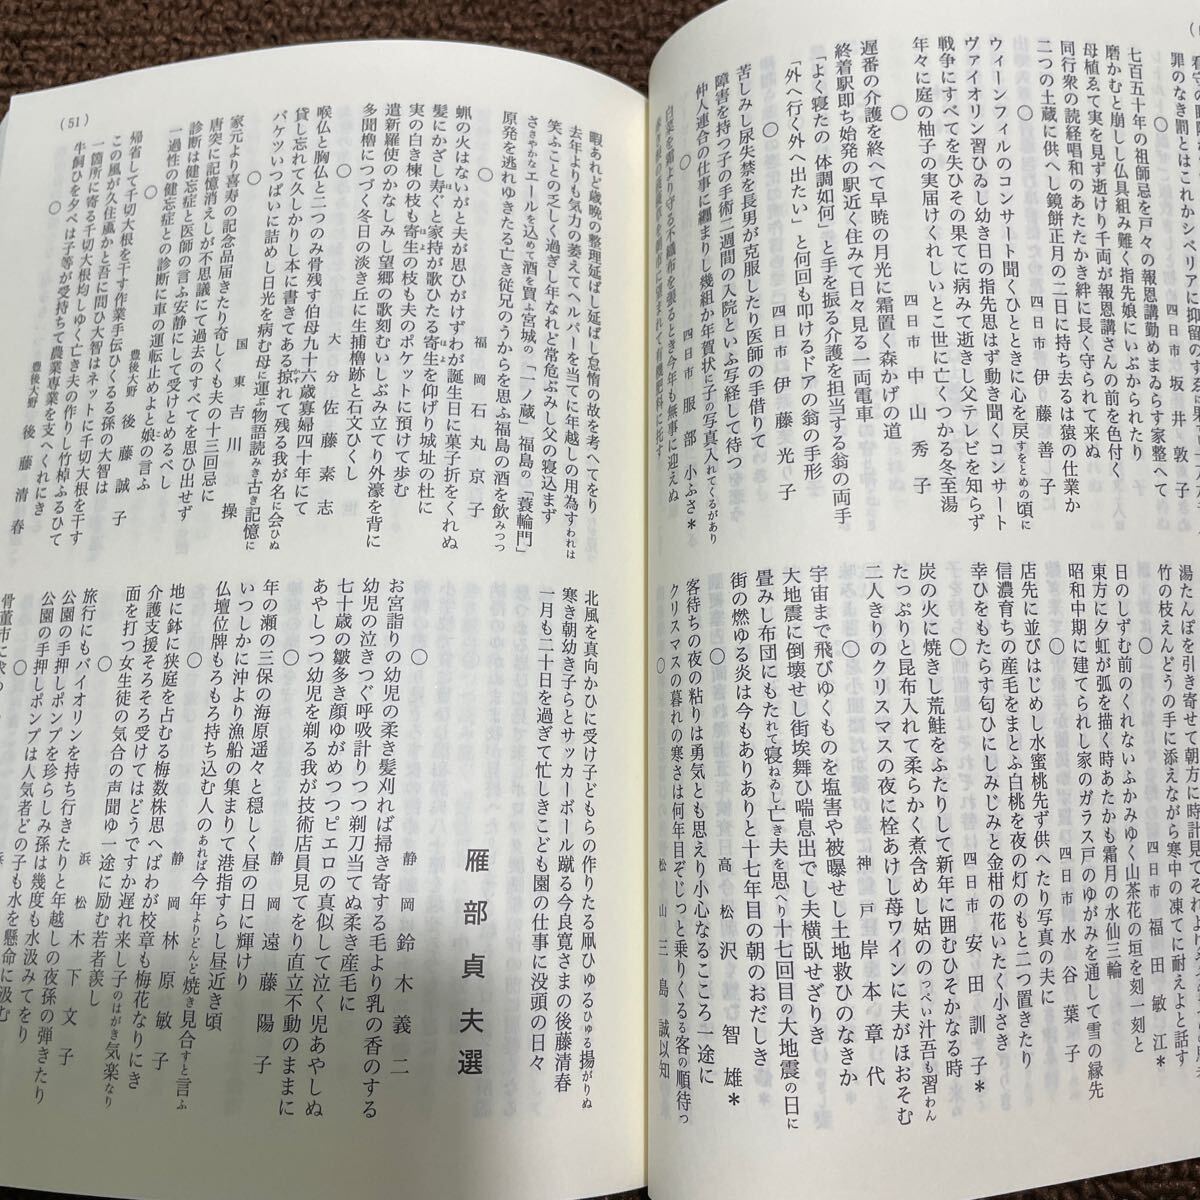 罪のなき罰とはこれかシベリアに抑留の
四日市 坂井敦子
七百五十年の祖師忌を戸々の報恩講勤めまゐらす家整へて
磨かむと崩しし仏具組み難く指先娘にいぶかられたり
母植ゑて実を見ず逝けり千両が報恩講さんの前を色付く
同行衆の読経唱和のあたたかき絆に長く守られて来ぬ
二つの土蔵に供へし鏡餅正月の二日に持ち去るは猿の仕業か
○
四日市 伊藤善子
ウィーンフィルのコンサート聞くひとときに心を戻すをとめの頃に
ヴァイオリン習ひゐし幼き日の指先思はず動き聞くコンサート
戦争にすべてを失ひその果てに病みて逝きし父テレビを知らず
年々に庭の柚子の実届けくれしいとこ世に亡くつかる冬至湯
○
四日市 中山秀子
遅番の介護を終へて早暁の月光に霜置く森かげの道
終着駅即ち始発の駅近く住みて日々見る一両電車
「よく寝たの 体調如何」と手を振る介護を担当する翁の両手
「外へ行く外へ出たい」と何回も叩けるドアの翁の手形
○
四日市 伊藤光子
苦しみし尿失禁を長男が克服したり医師の手借りて
障害を持つ子の手術二週間の入院といふ写経して待つ
仲人連合の仕事に纏まりし幾組か年賀状に子の写真入れてくるがあり
○
四日市 服部小ふさ＊
白菜を霜より守る不織布を張るとき今年も無事に迎えぬ
湯たんぽを引き寄せて朝方に時計見て
竹の枝えんどうの手に添えながら寒中の凍てに耐えよと話す
○
四日市 福田敏江＊
日のしずむ前のくれないふかみゆく山茶花の垣を刻一刻と
東方に夕虹が弧を描く時あたかも霜月の水仙三輪
昭和中期に建てられし家のガラス戸のゆがみを通して雪の縁先
○
四日市 水谷葉子
店先に並びはじめし水蜜桃先ず供へたり写真の夫に
信濃育ちの産毛をまとふ白桃を夜の灯のもと二つ置きたり
幸ひをもたらす匂ひにしみじみと金柑の花いたく小さき
○
四日市 安田訓子＊
炭の火に焼きし荒鮭をふたりして新年に囲むひそかなる時
たっぷりと昆布入れて柔らかく煮含めし姑ののっぺい汁吾も習わん
二人きりのクリスマスの夜に栓あけし苺ワインに夫がほおそむ
○
神戸 岸本章代
宇宙まで飛びゆくものを塩害や被曝せし土地救ひのなきか
大地震に倒壊せし街埃舞ひ喘息出でし夫横臥せざりき
畳みし布団にもたれて寝ねゐし亡き夫を思へり十七回目の大地震の日に
街の燃ゆる炎は今もありありと十七年目の朝のおだしき
○
高松 沢智雄＊
客待ちの夜の粘りは勇気とも思えり小心なるこころ一途に
クリスマスの暮れの寒さは何年目ぞじっと乗りくるる客の順待つ
○
松山 三島誠以知
暇あれど歳晩の整理延ばし延ばし怠惰の故を考へてをり
去年よりも気力の萎えてヘルパーを当てに年越しの用為すわれは
笑ふことの乏しく過ぎし年なれど常危ぶみし父の寝込まず
ささやかなエールを込めて酒を買ふ宮城の「一ノ蔵」福島の「蓑輪門」
原発を逃れゆきたる亡き従兄のうからを思ふ福島の酒を飲みつつ
○
福岡 石丸京子
蝋の火はないがと夫が思ひがけずわが誕生日に菓子折をくれぬ
髪にかざし寿ぐと家持が歌ひたる寄生を仰げり城址の杜に
実の白き楝の枝も寄生の枝も夫のポケットに預けて歩む
遣新羅使のかなしみし望郷の歌刻むいしぶみ立てり外濠を背に
多聞櫓につづく冬日の淡き丘に生捕櫓跡と石文ひくし
○
大分 佐藤素志
喉仏と胸仏と二つのみ骨残す伯母九十六歳寡婦四十年にて
貸し忘れて久しかりし本に書きてある掠れて残る我が名に会ひぬ
バケツいっぱいに詰めし日光を病む母に運ぶ物語読みき古き記憶に
○
国東 吉川操
家元より喜寿の記念品届きたり奇しくも夫の十三回忌に
唐突に記憶消えしが不思議にて過去のすべてを思ひ出せず
診断は健忘症と医師の言ふ安静にして受けとめるべし
一過性の健忘症との診断に車の運転止めよと娘の言ふ
○
豊後大野 後藤誠子
帰省して千切大根を干す作業手伝ひくるる孫の大智は
この風が久住颪かと吾に問ひ大智はネットに千切大根を干す
一箇所に寄る千切大根均しゆく亡き夫の作りし竹棹ふるひて
○
豊後大野 後藤清春
牛飼ひを夕べは子等が受持ちて農業専業を支へくれにき
(51)
北風を真向かひに受け子どもらの作りたる凧ひゆるひゆる揚がりぬ
寒き朝幼き子らとサッカーボール蹴る今良寛さまの後藤清春
一月も二十日を過ぎて忙しきこども園の仕事に没頭の日々
雁部貞夫選
○
静岡 鈴木義二
お宮詣りの幼児の柔き髪刈れば掃き寄する毛より乳の香のする
幼児の泣きつぐ呼吸計りつつ剃刀当てぬ柔き産毛に
七十歳の皺多き顔ゆがめつつピエロの真似して泣く児あやしぬ
あやしつつ幼児を剃る我が技術店員見てをり直立不動のままに
○
静岡 遠藤陽子
年の瀬の三保の海原遥々と穏しく昼の日に輝けり
いつしかに沖より漁船の集まりて港指すらし昼近き頃
仏壇位牌もろもろ持ち込む人のあれば今年よりどんど焼き見合すと言ふ
○
静岡 林原敏子
地に鉢に狭庭を占むる梅数株思へばわが校章も梅花なりにき
介護支援そろそろ受けてはどうですか遅れ来し子のはがき気楽なり
面を打つ女生徒の気合の声聞ゆ一途に励む若者羨し
○
浜松 木下文子
旅行にもバイオリンを持ち行きたりと年越しの夜孫の弾きたり
公園の手押しポンプを珍らしみ孫は幾度も水汲みてをり
公園の手押しポンプは人気者どの子も水を懸命に汲む
○